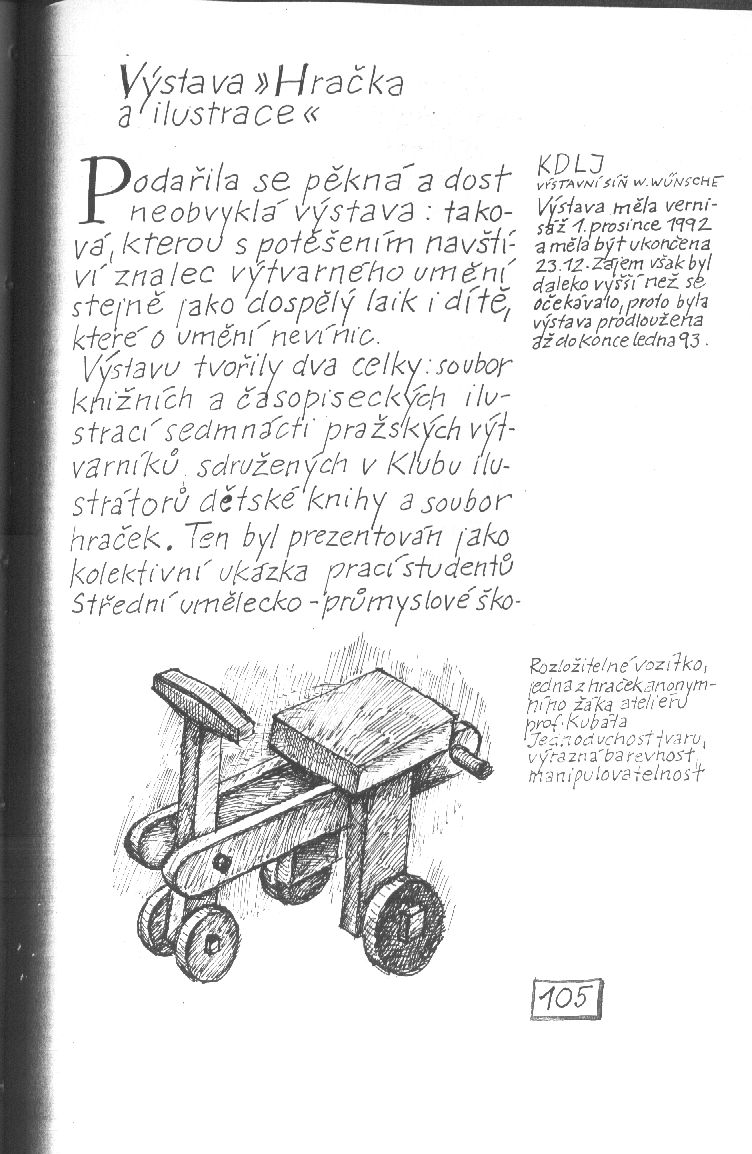 Výstava »Hračka
a ilustrace«
Podařila se pěkná a dost
neobvyklá výstava: tako-
vá, kterou s potěšením navští-
ví znalec výtvarného umění
stejně jako dospělý laik i dítě,
které o umění neví nic.
Výstavu tvořily dva celky: soubor
knižních a časopiseckých ilu-
strací sedmnácti pražských výt-
varníků, sdružených v Klubu ilu-
strátorů dětské knihy a soubor
hraček. Ten byl prezentován jako
kolektivní ukázka prací studentů
Střední umělecko-průmyslové ško-
KDLJ
VÝSTAVNÍ SÍŇ W. WÜNSCHE
Výstava měla verni-
sáž 1. prosince 1992
a měla být ukončena
23.12. Zájem však byl
daleko vyšší než se
očekávalo, proto byla
výstava prodloužena
až do konce ledna 93.
Rozložitelné vozítko,
jedna z hraček anonym-
ního žáka atelieru
prof. Kubáta
Jednoduchost tvaru,
výrazná barevnost,
manipulovatelnost
105